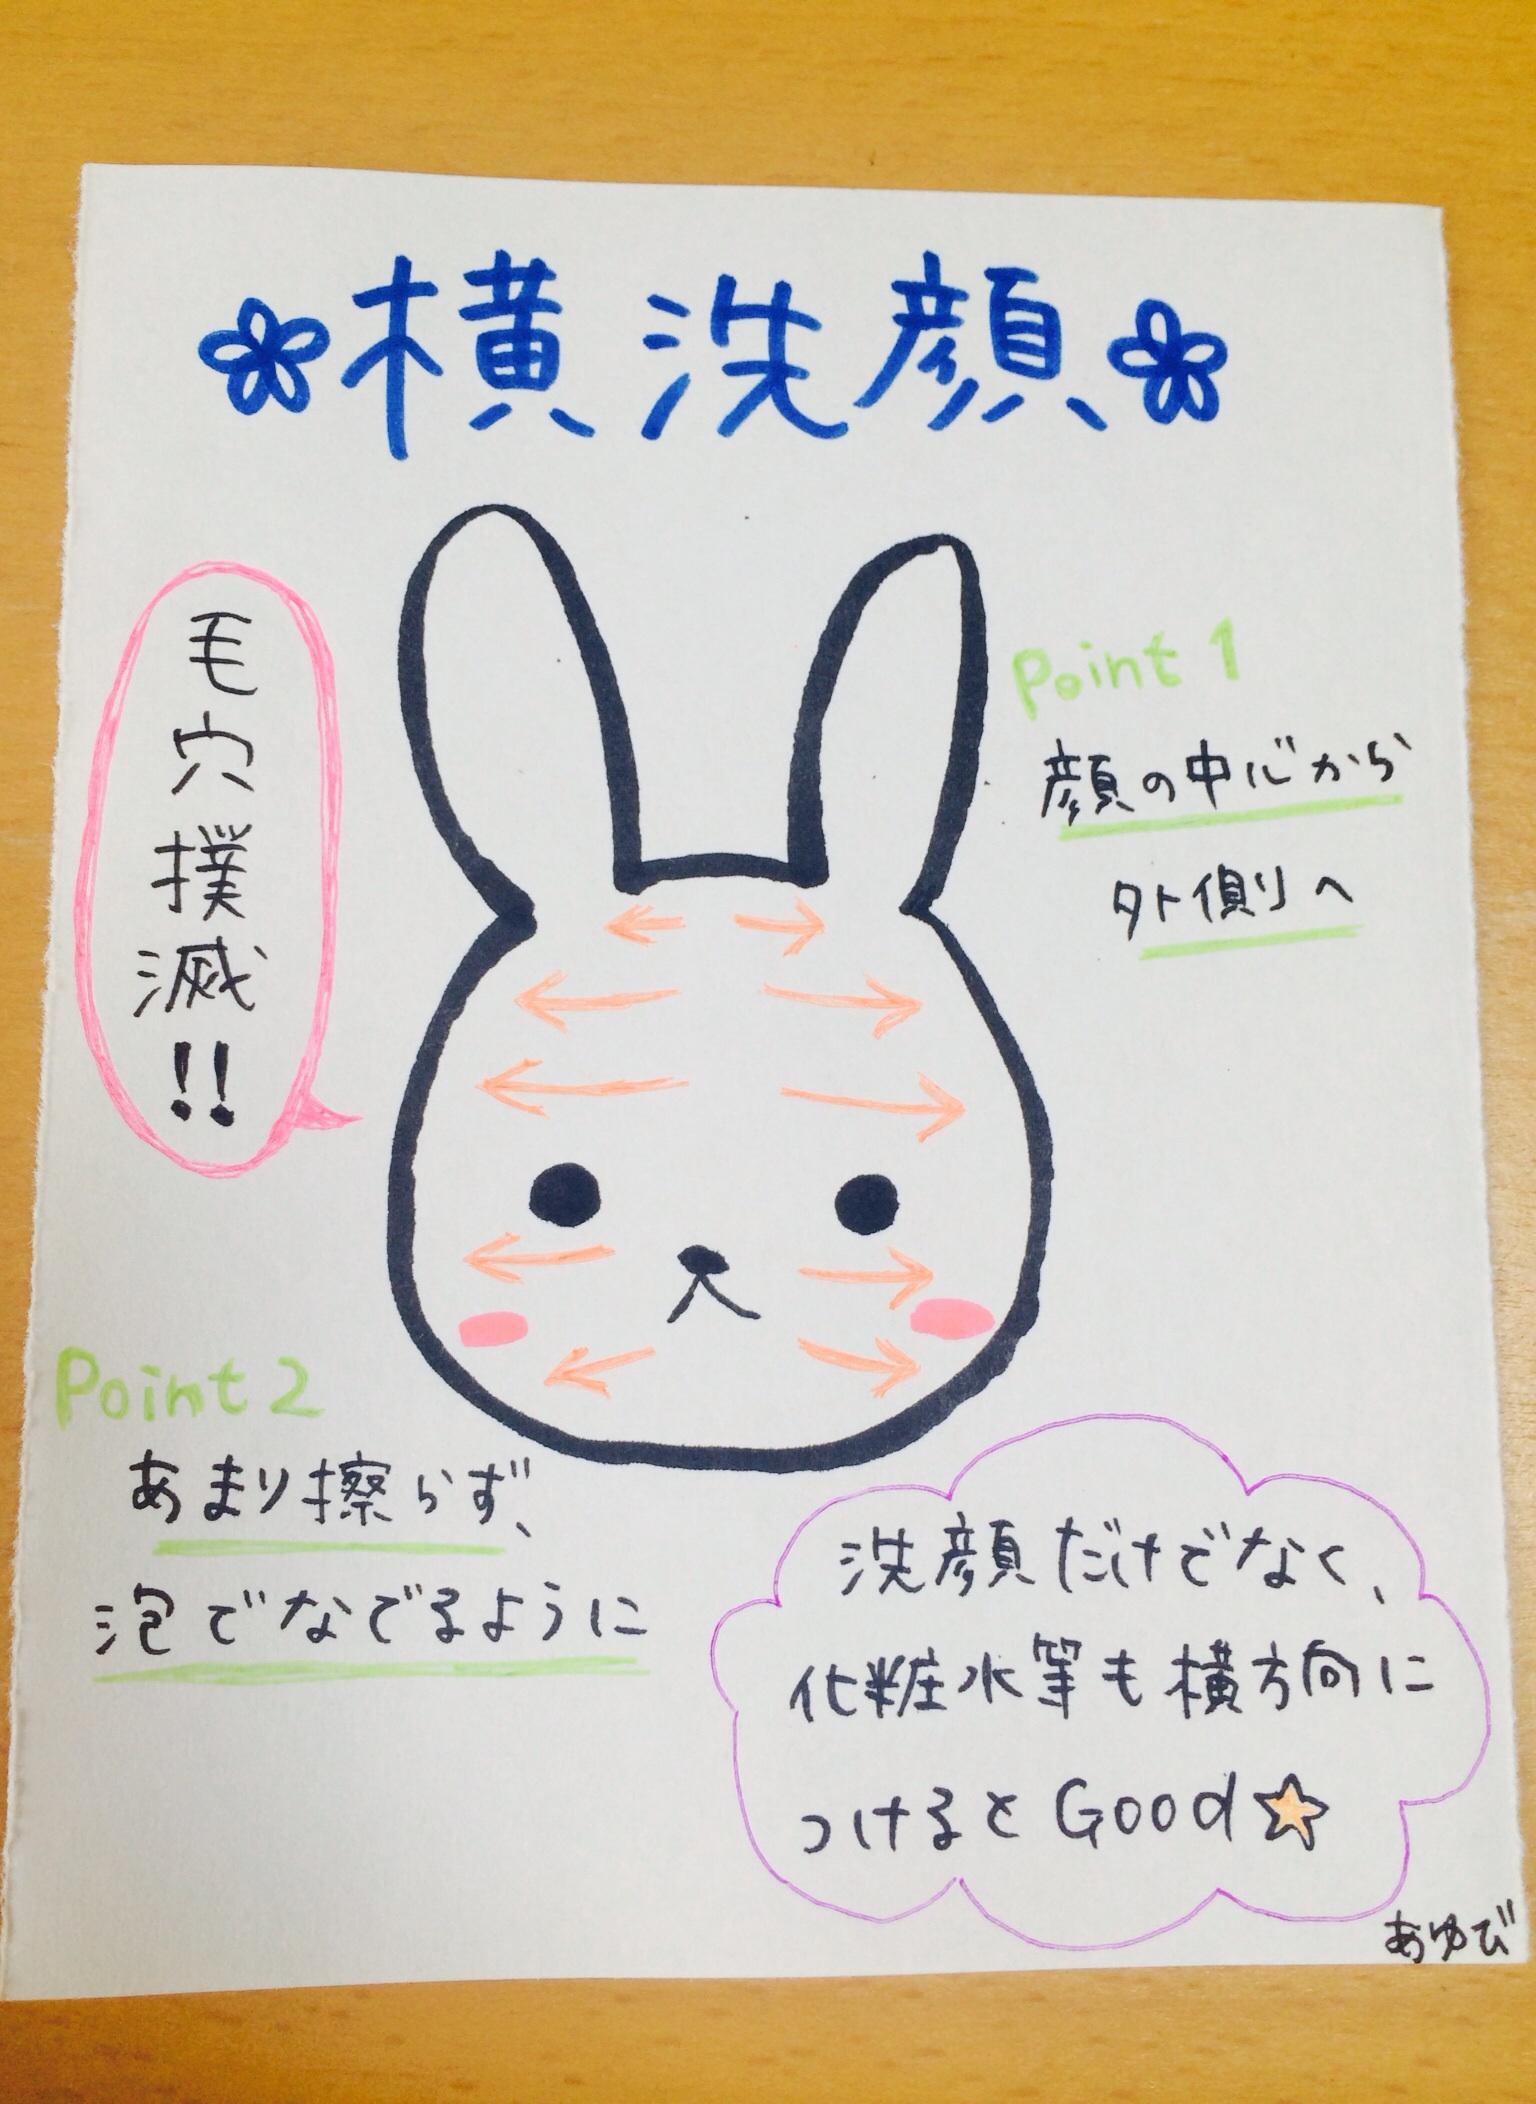 横洗顔
毛穴撲滅!!
Point 1
顔の中心から
外側へ
Point 2
あまり擦らず、
泡でなでるように
洗顔だけでなく、
化粧水等も横方向に
つけるとGood
あゆび